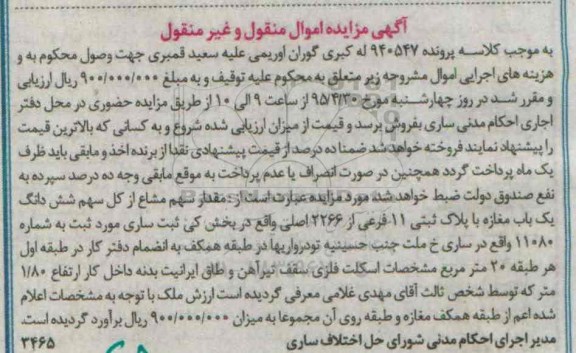 آگهی مزایده اموال منقول و غیر منقول
به موجب کلاسه پرونده ۹۴۰۵۴۷ له کبری گوران اوریمی علیه سعید قمبری جهت وصول محکوم به و
هزینه های اجرایی اموال مشروحه زیر متعلق به محکوم علیه توقیف و به مبلغ ۹۰۰/۰۰۰/۰۰۰ ریال ارزیابی
و مقرر شد در روز چهارشنبه مورخ ۹۵/۴/۳۰ از ساعت ۹ الی ۱۰ از طریق مزایده حضوری در محل دفتر
اجاری احکام مدنی ساری بفروش برسد و قیمت از میزان ارزیابی شده شروع و به کسانی که بالاترین قیمت
را پیشنهاد نمایند فروخته خواهد شد ضمنا ده درصد از قیمت پیشنهادی نقدا از برنده اخذ و مابقی باید ظرف
یک ماه پرداخت گردد همچنین در صورت انصراف یا عدم پرداخت به موقع مابقی وجه ده درصد سپرده به
نفع صندوق دولت ضبط خواهد شد، مورد مزایده عبارت است از: مقدار سهم مشاع از کل سهم شش دانگ
یک باب مغازه با پلاک ثبتی ۱۱ فرعی از ۲۲۶۶ اصلی واقع در بخش کی ثبت ساری مورد ثبت به شماره
۱۱۰۸۰ واقع در ساری خ ملت جنب حسینیه نودرواریها در طبقه همکف به انضمام دفتر کار در طبقه اول
هر طبقه ۲۰ متر مربع مشخصات اسکلت فلزی سقف تیرآهن و طاق ایرانیت بدنه داخل کار ارتفاع ۱/۸۰
متر که توسط شخص ثالث آقای مهدی غلامی معرفی گردیده است ارزش ملک با توجه به مشخصات اعلام
شده اعم از طبقه همکف مغازه و طبقه روی آن مجموعا به میزان ۹۰۰/۰۰۰/۰۰۰ ریال برآورد گردیده است.
مدیر اجرای احکام مدنی شورای حل اختلاف ساری ۳۴۶۵